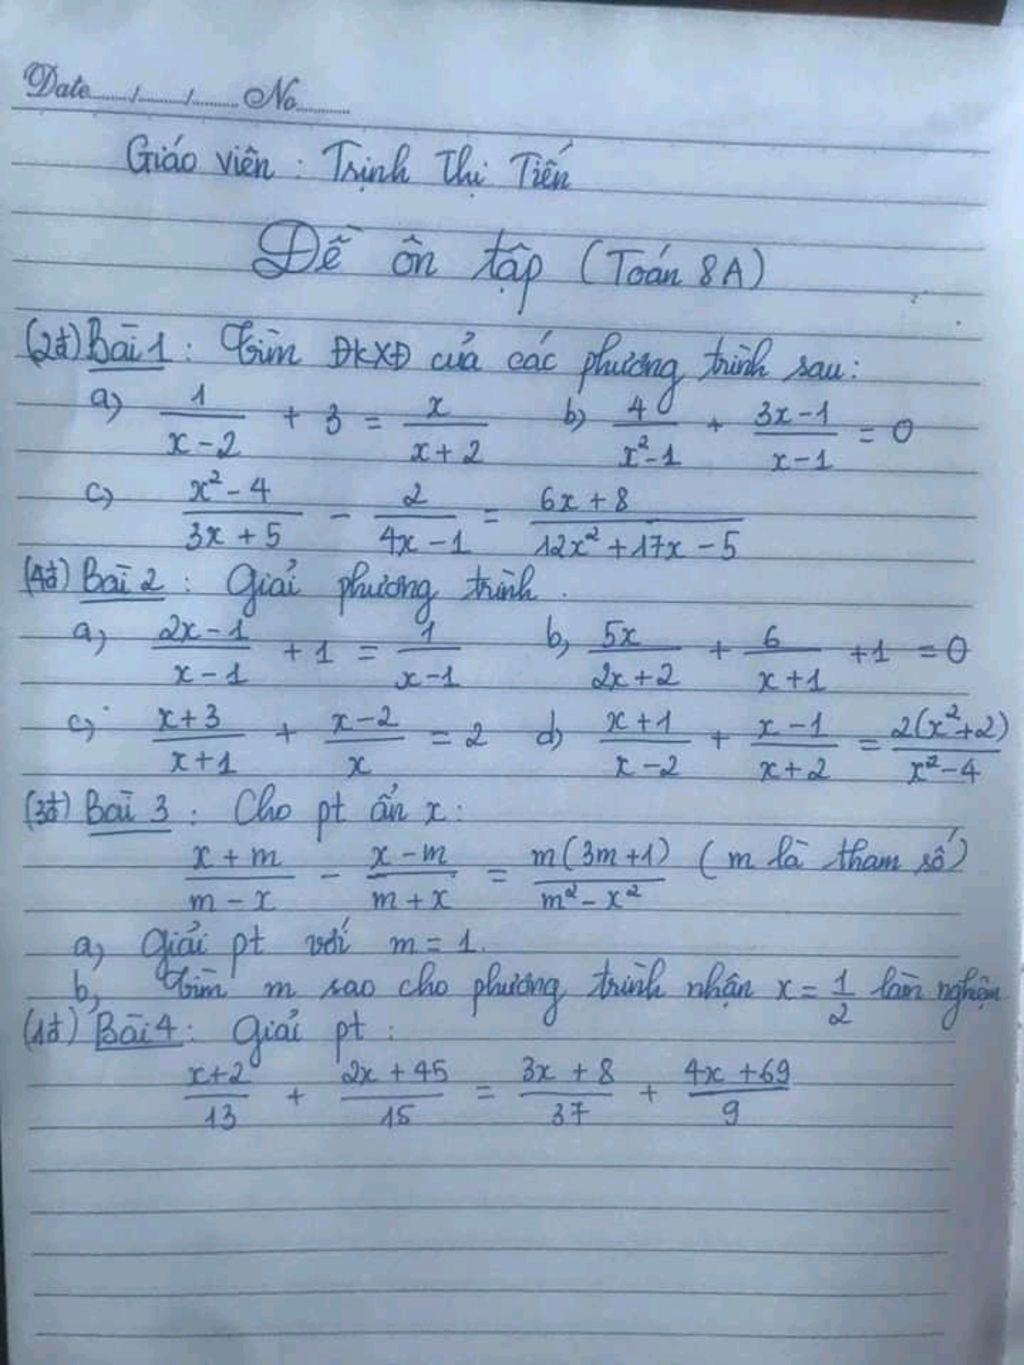 Date....../....../...... No.......
Giáo viên : Trịnh Thị Tiến
Đề ôn tập (Toán 8A)
(2đ) Bài 1 : Tìm ĐKXĐ của các phương trình sau :
a) 1/(x-2) + 3 = x/(x+2) b) 4/(x²-1) + (3x-1)/(x-1) = 0
c) (x²-4)/(3x+5) - 2/(4x-1) = (6x+8)/(12x²+17x-5)
(4đ) Bài 2 : Giải phương trình .
a) (2x-1)/(x-1) + 1 = 1/(x-1) b) 5x/(2x+2) + 6/(x+1) + 1 = 0
c) (x+3)/(x+1) + (x-2)/x = 2 d) (x+1)/(x-2) + (x-1)/(x+2) = 2(x²+2)/(x²-4)
(3đ) Bài 3 : Cho pt ẩn x :
(x+m)/(m-x) - (x-m)/(m+x) = m(3m+1)/(m²-x²) (m là tham số)
a) Giải pt với m = 1.
b) Tìm m sao cho phương trình nhận x = 1/2 làm nghiệm
(1đ) Bài 4 : Giải pt :
(x+2)/13 + (2x+45)/15 = (3x+8)/37 + (4x+69)/9